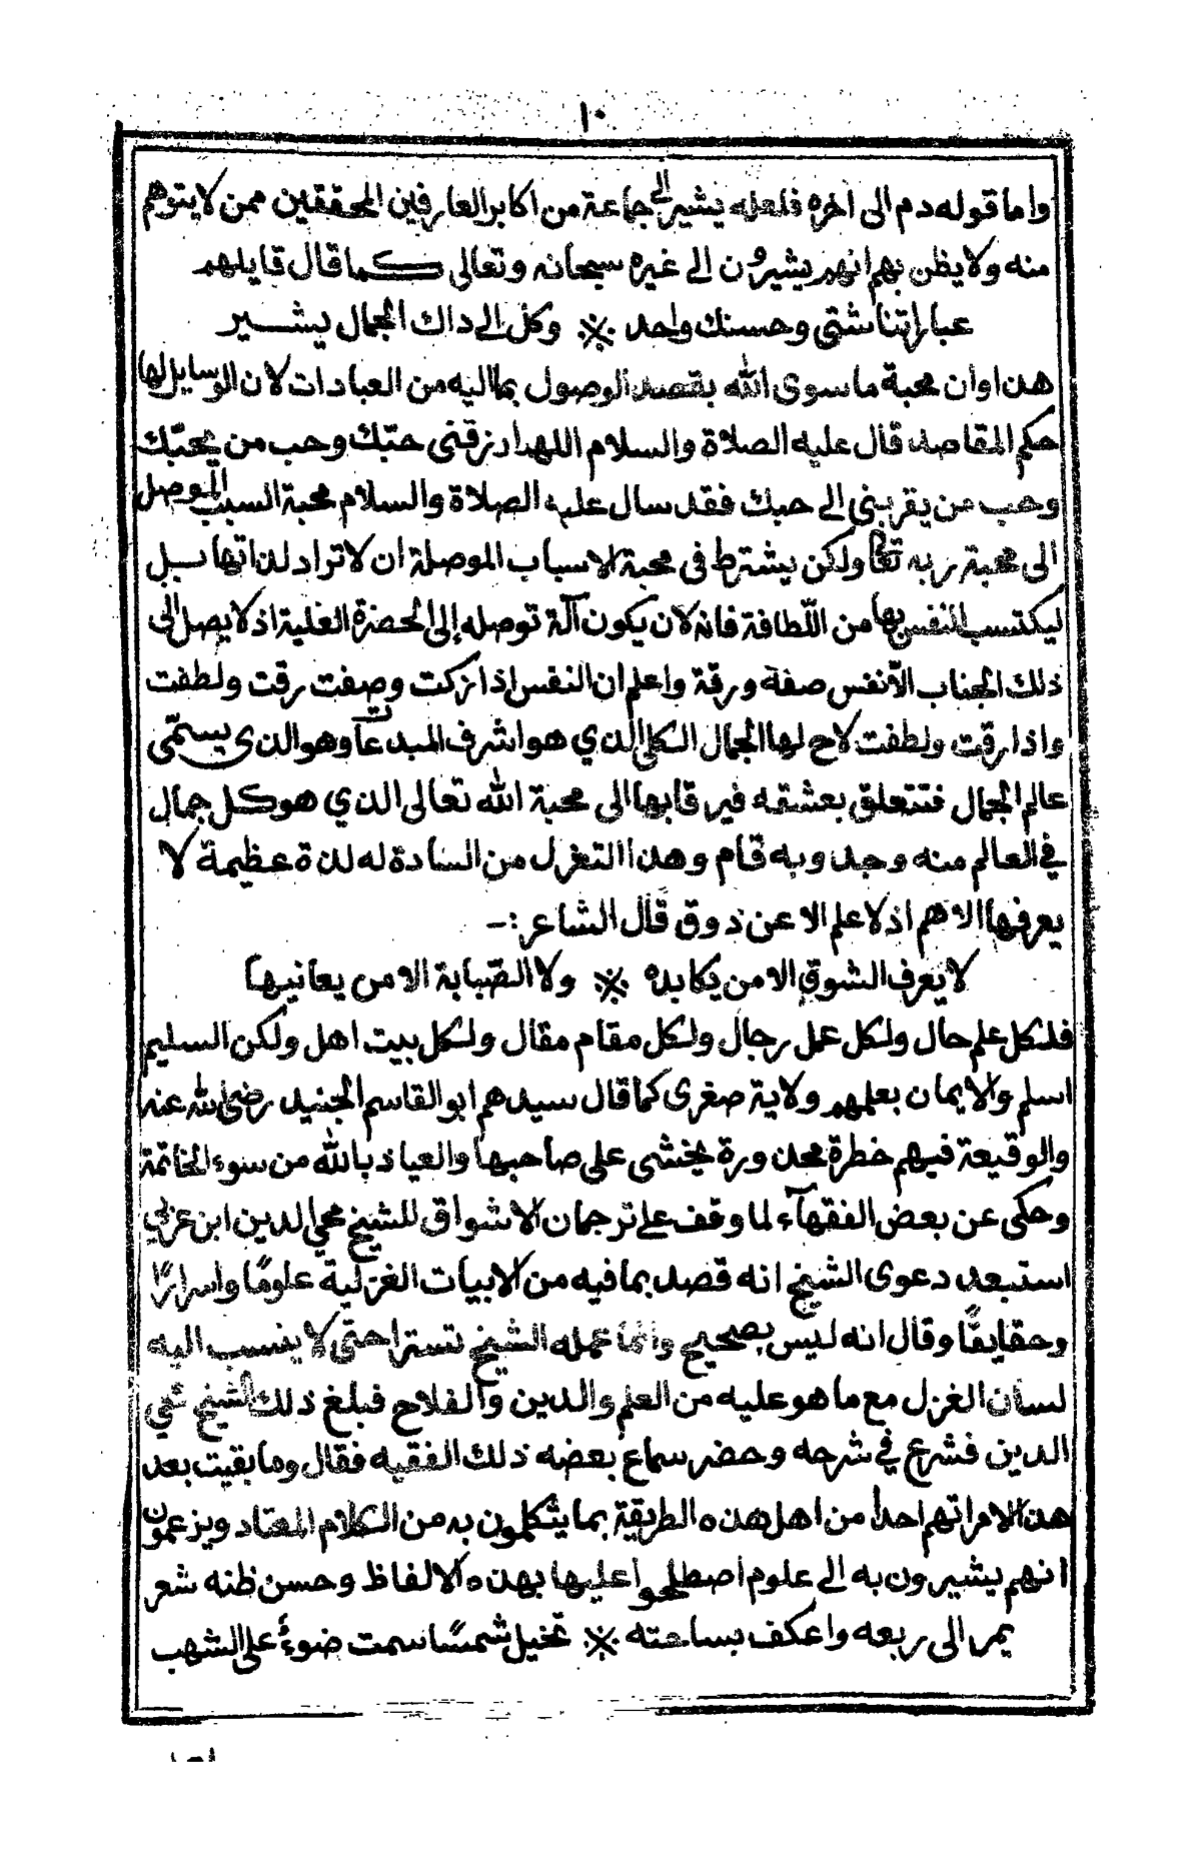 ١٠
واما قوله دم الى اخره فلعله يشير الى جماعة من اكابر العارفين المحققين ممن لا يتوهم
منه ولا يظن بهم انهم يشيرون الى غيره سبحانه وتعالى كما قال قايلهم
عباراتنا شتى وحسنك واحد ※ وكل الى ذاك الجمال يشير
هذا وان محبة ما سوى الله بقصد الوصول بما اليه من العبادات لان الوسايل لها
حكم المقاصد قال عليه الصلاة والسلام اللهم ارزقنى حبّك وحب من يحبّك
وحب من يقربني الى حبك فقد سال عليه الصلاة والسلام محبة السبب الموصل
الى محبة ربه تعالى ولكن يشترط فى محبة الاسباب الموصلة ان لا تراد لذاتها بل
ليكتسب النفس بها من اللّطافة فانه لان يكون آلة توصله إلى الحضرة العلية اذ لا يصل الى
ذلك الجناب الأنفس صفة ورقة واعلم ان النفس اذا زكت وصفت رقت ولطفت
واذا رقت ولطفت لاح لها الجمال الكلى الذي هو اشرف المبدعات وهو الذى يسمّى
عالم الجمال فتتعلق بعشقه فيرقابها الى محبة الله تعالى الذي هو كل جمال
في العالم منه وجد وبه قام وهذا التغزل من السادة له لذة عظيمة لا
يعرفها الا هم اذ لا علم الا عن ذوق قال الشاعر :-
لا يعرف الشوق الا من يكابده ※ ولا الصّبابة الا من يعانيها
فلكل علم حال ولكل عمل رجال ولكل مقام مقال ولكل بيت اهل ولكن السليم
اسلم والايمان بعلمهم ولاية صغرى كما قال سيدهم ابو القاسم الجنيد رضى الله عنه
والوقيعة فيهم خطرة محذورة يخشى على صاحبها والعياذ بالله من سوء الخاتمة
وحكى عن بعض الفقهآء لما وقف على ترجمان الاشواق للشيخ محي الدين ابن عربي
استبعد دعوى الشيخ انه قصد بما فيه من الابيات الغزلية علومًا واسرارًا
وحقايقًا وقال انه ليس بصحيح وانما عمله الشيخ تسترا حتى لا ينسب اليه
لسان الغزل مع ما هو عليه من العلم والدين والفلاح فبلغ ذلك الشيخ محي
الدين فشرع في شرحه وحضر سماع بعضه ذلك الفقيه فقال وما بقيت بعد
هذا الامر اتهم احدا من اهل هذه الطريقة بما يتكلمون به من الكلام المعتاد ويزعمون
انهم يشيرون به الى علوم اصطلحوا عليها بهذه الالفاظ وحسن ظنه شعر
يمر الى ربعه واعكف بساحته ※ تخيل شمسًا سمت ضوءً على الشهب